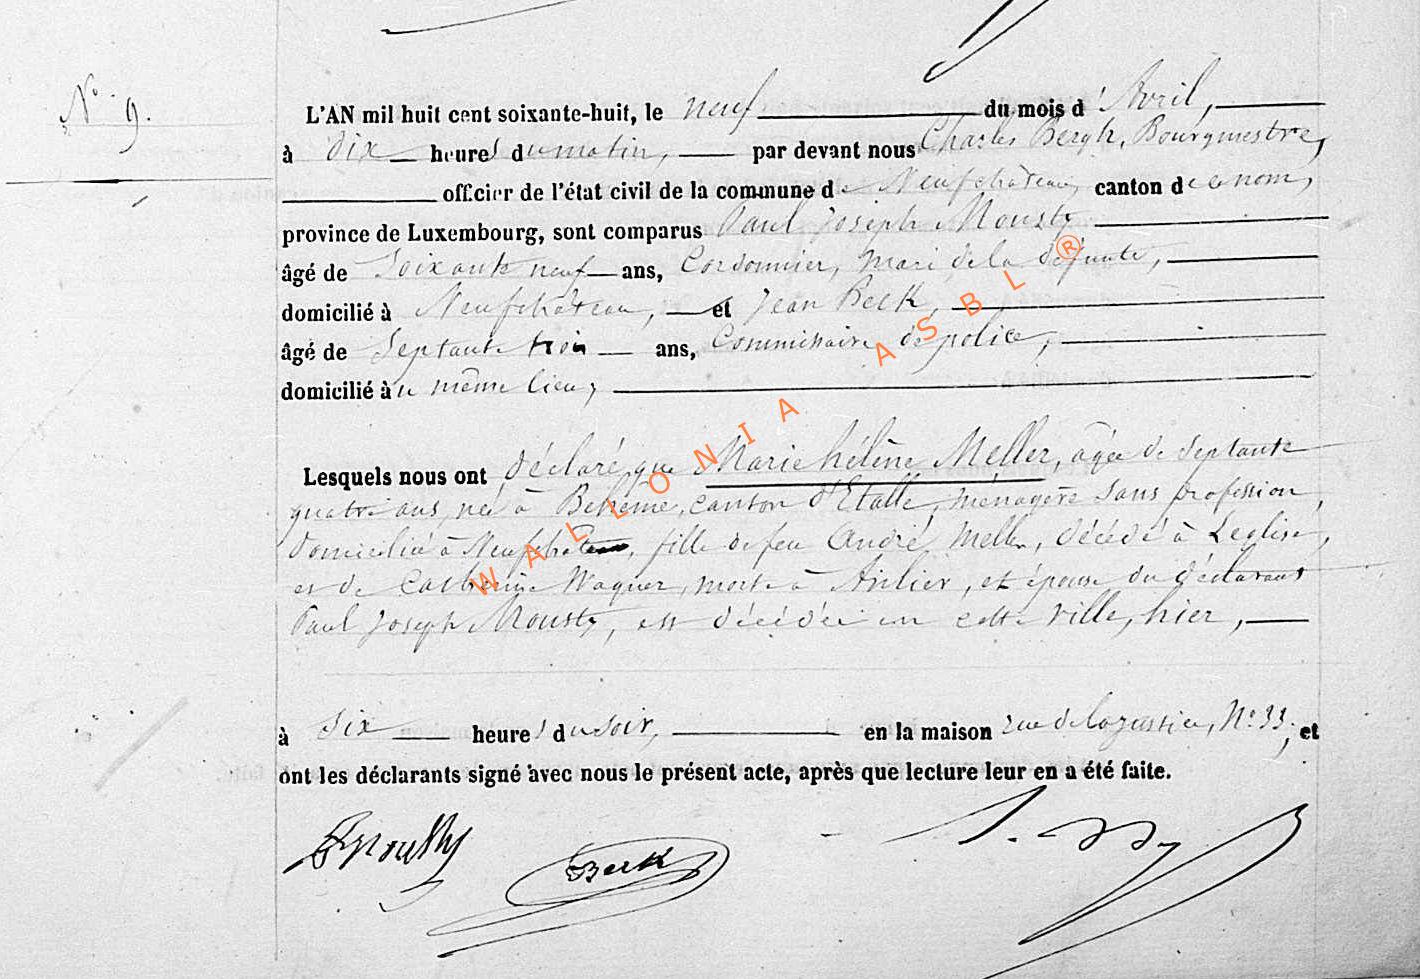 N° 9.
L'AN mil huit cent soixante-huit, le neuf du mois d'Avril,
à dix heures du matin, par devant nous Charles Bergh, Bourgmestre,
officier de l'état civil de la commune de Neufchâteau, canton de ce nom,
province de Luxembourg, sont comparus Paul Joseph Mousty
âgé de Soixante neuf ans, Cordonnier, mari de la défunte,
domicilié à Neufchâteau, et Jean Beck,
âgé de Septante trois ans, Commissaire de police,
domicilié au même lieu,
Lesquels nous ont déclaré que Marie hélène Meller, âgée de Septante
quatre ans, née à Behême, canton d'Etalle, ménagère sans profession,
domiciliée à Neufchâteau, fille de feu André Meller, décédé à Leglise,
et de Catherine Wagner, morte à Anlier, et épouse du déclarant
Paul Joseph Mousty, est décédée en cette ville, hier,
à Six heures du soir, en la maison rue de la justice, N° 33, et
ont les déclarants signé avec nous le présent acte, après que lecture leur en a été faite.
PJMousty
Beck
WALLONIA ASBL ®